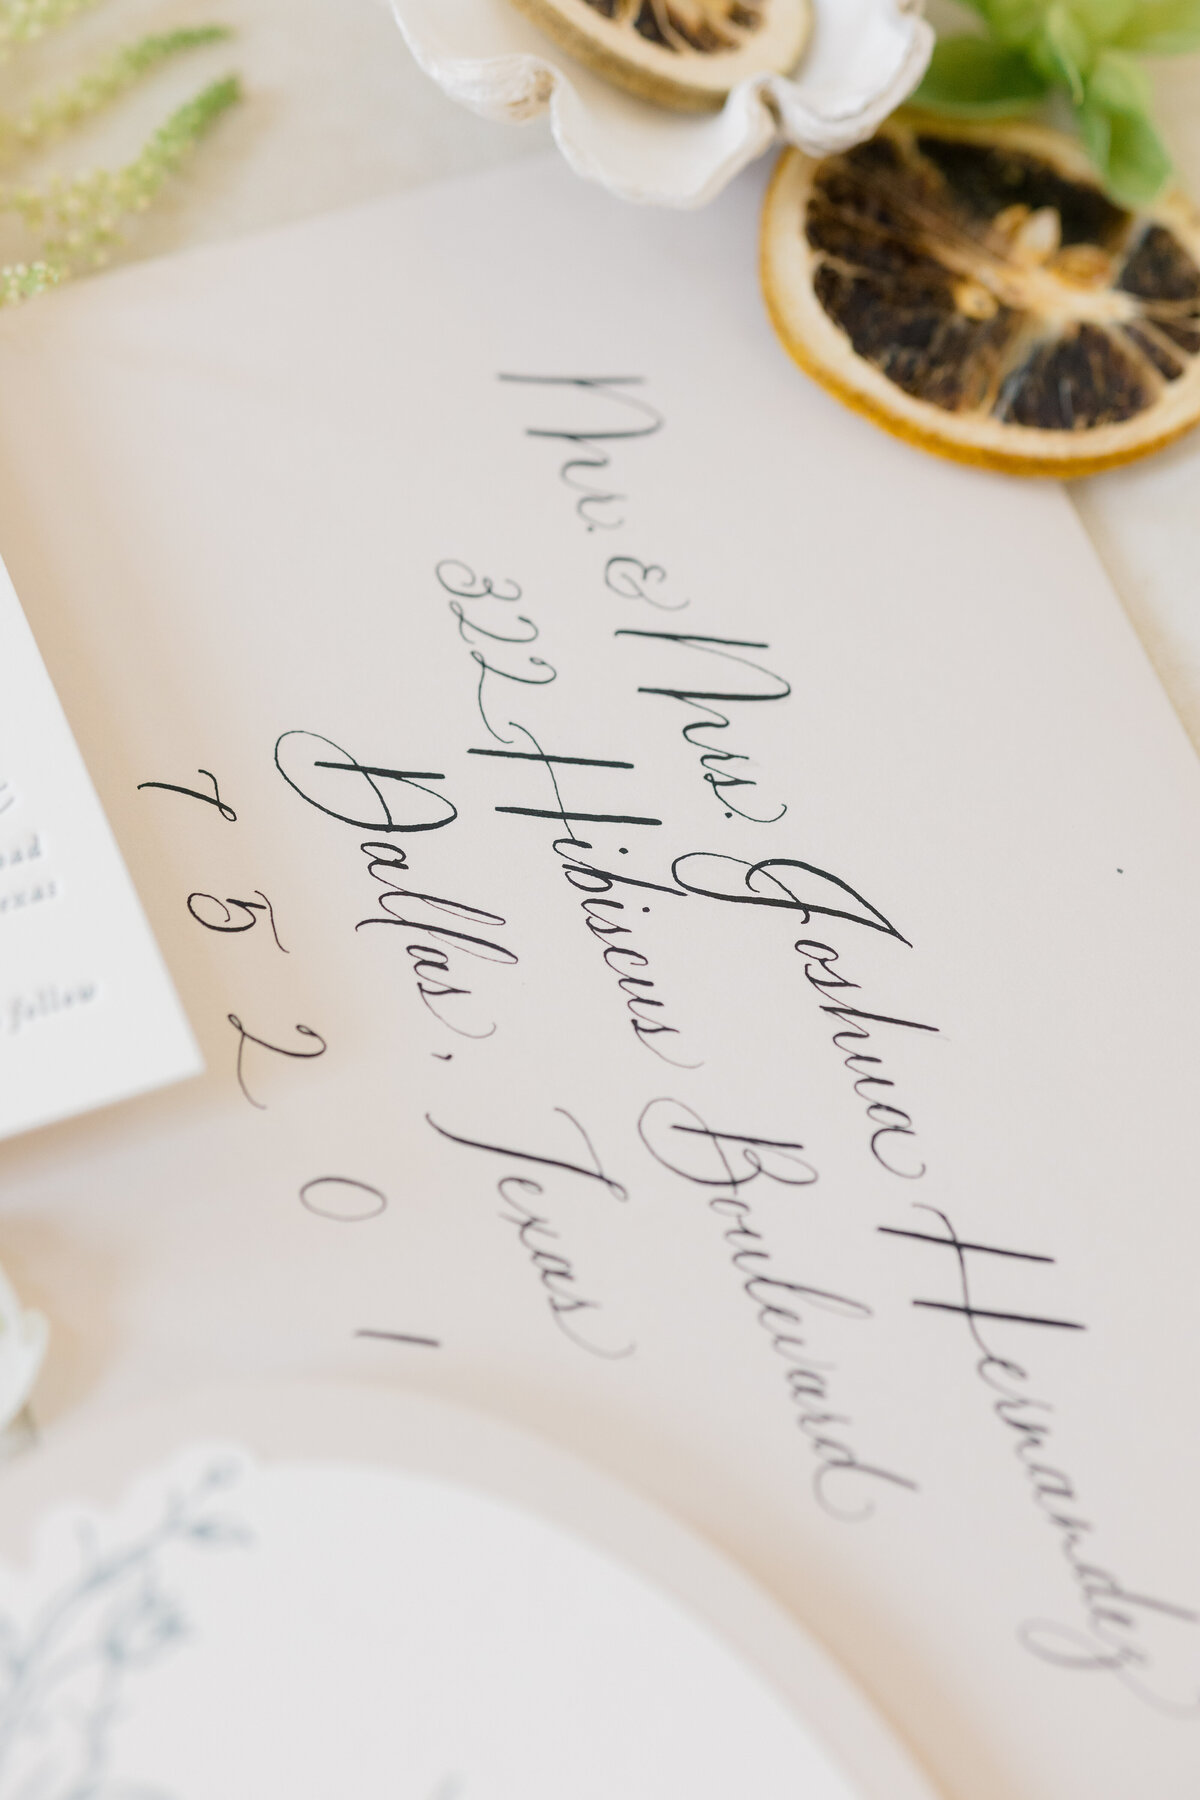 Mr. & Mrs. Joshua Hernandez
322 Hibiscus Boulevard
Dallas, Texas
7 5 2 0 1
follow